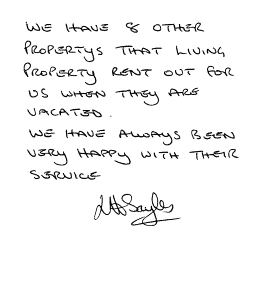 WE HAVE 8 OTHER
PROPERTYS THAT LIVING
PROPERTY RENT OUT FOR
US WHEN THEY ARE
VACATED.
WE HAVE ALWAYS BEEN
VERY HAPPY WITH THEIR
SERVICE